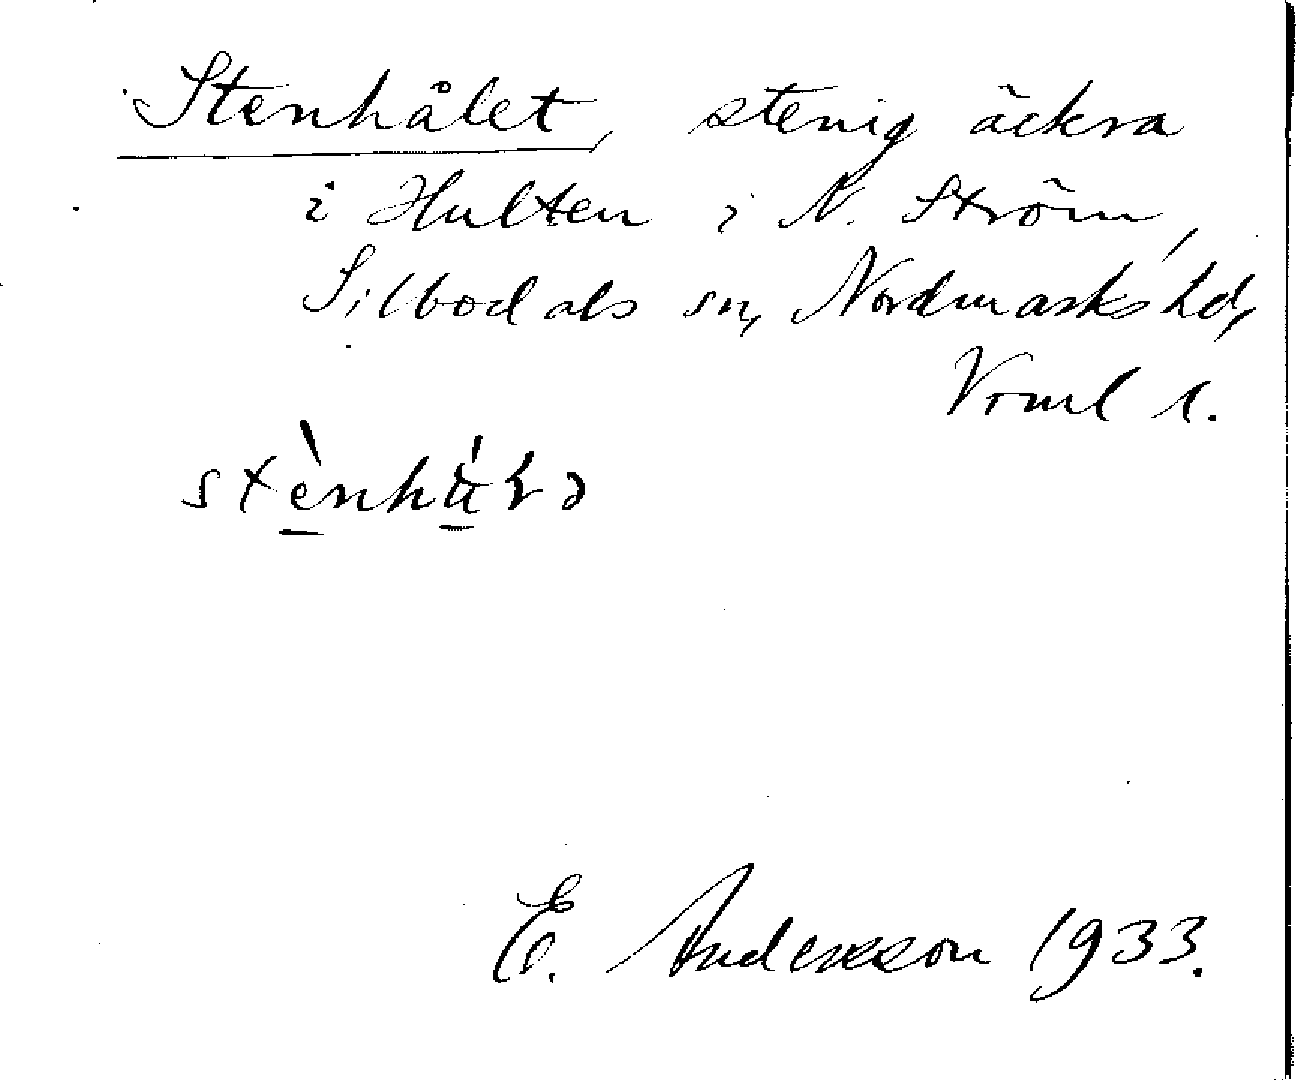 Stenhålet, stenig äckra
i Hulten i N. Ström,
Silbodals sn, Nordmarks hd,
Vrml l.
E. Andersson 1933.